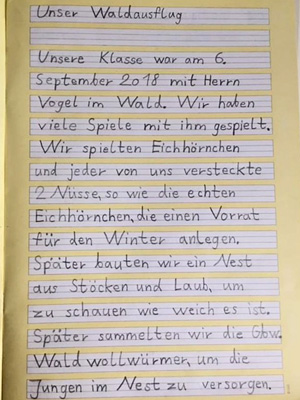 Unser Waldausflug
Unsere Klasse war am 6.
September 2018 mit Herrn
Vogel im Wald. Wir haben
viele Spiele mit ihm gespielt.
Wir spielten Eichhörnchen
und jeder von uns versteckte
2 Nüsse, so wie die echten
Eichhörnchen, die einen Vorrat
für den Winter anlegen.
Später bauten wir ein Nest
aus Stöcken und Laub, um
zu schauen wie weich es ist.
Später sammelten wir die
Wald wollwürmer, um die
Jungen im Nest zu versorgen.